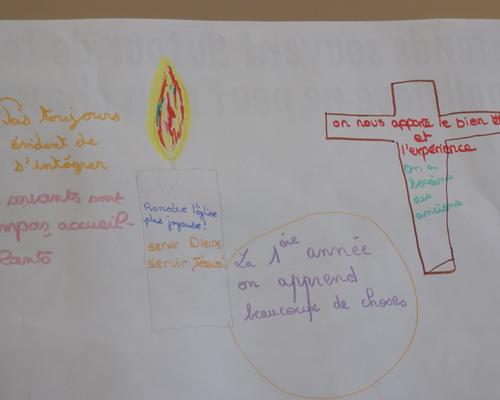 Pas toujours
évident de
s'intégrer
servants sont
accueil-
lants
Rendre l'église
plus joyeuse!
servir Dieu,
servir Jésus!
La 1ère année
on apprend
beaucoup de choses
on nous apporte le bien
et
l'expérience
on a
besoin
des
anciens